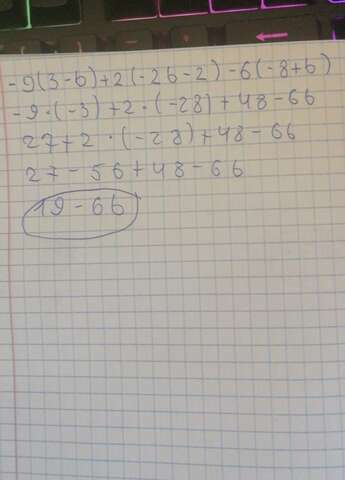 -9(3-6)+2(-26-2)-6(-8+b)
-9·(-3)+2·(-28)+48-6b
27+2·(-28)+48-6b
27-56+48-6b
19-6b